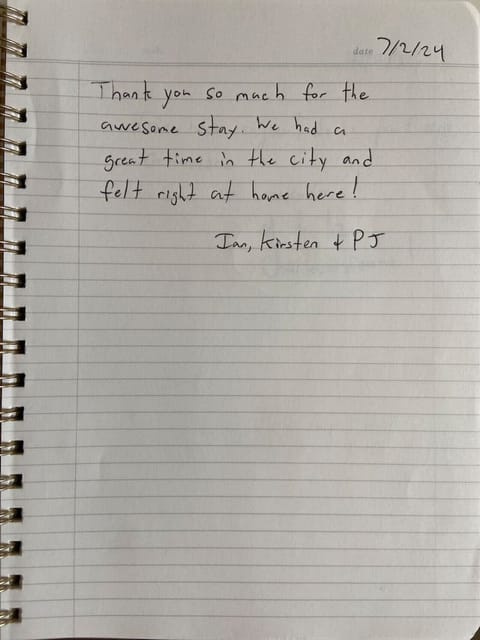 date 7/2/24
Thank you so much for the
awesome stay. We had a
great time in the city and
felt right at home here!
Ian, Kirsten + PJ